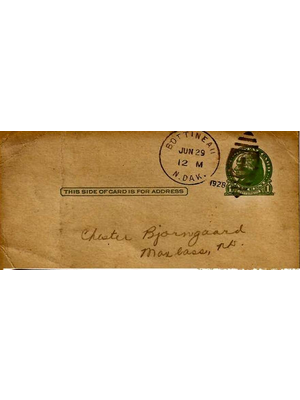 BOTTINEAU
JUN 29
12 M
N. DAK.
1928
THIS SIDE OF CARD IS FOR ADDRESS
Chester Bjorngaard
Maxbass, N.D.